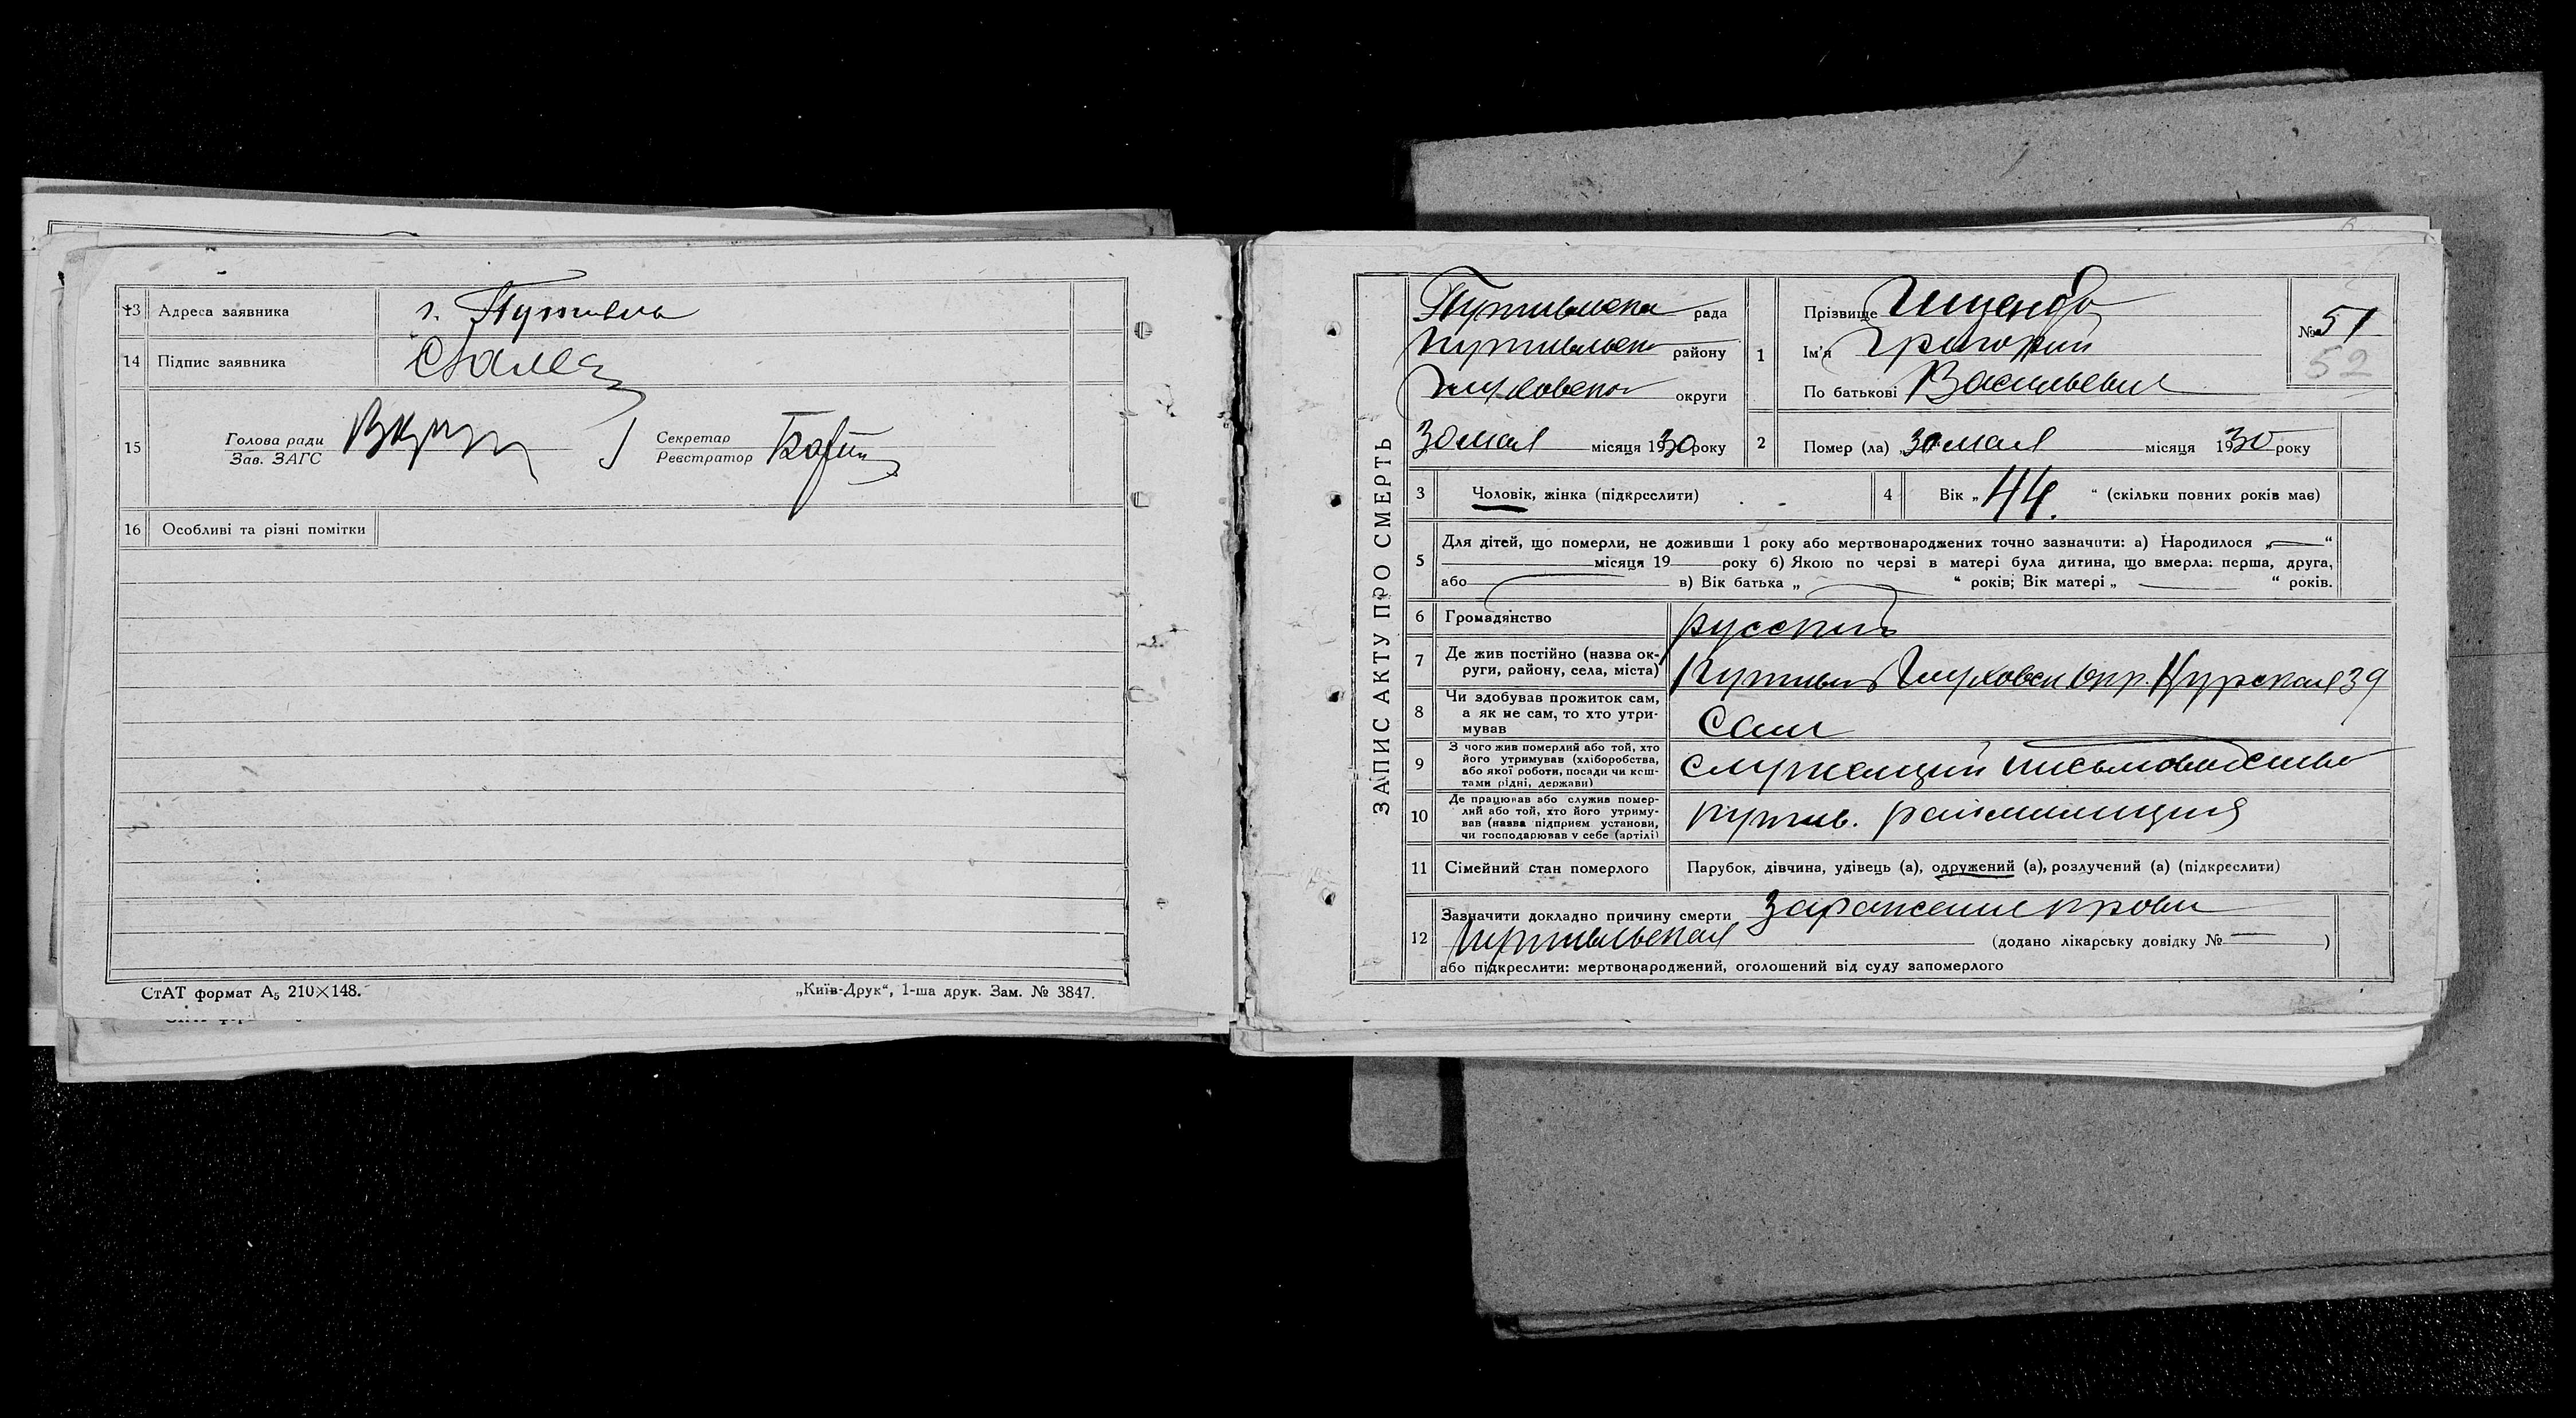 13 Адреса заявника г. Путивль
14 Підпис заявника
15 Голова ради
Зав. ЗАГС
Секретар
Реєстратор
16 Особливі та різні помітки
СтАТ формат А5 210×148.
„Київ-Друк“, 1-ша друк. Зам. № 3847.
ЗАПИС АКТУ ПРО СМЕРТЬ
Путивльска рада
Путивльск району
Глуховског округи
30 мая місяця 1930 року
1 Прізвище
Ім'я Григорий
По батькові Васильевич
№ 51
52
2 Помер (ла) „30 мая місяця 1930 року
3 Чоловік, жінка (підкреслити)
4 Вік „44.“ (скільки повних років має)
5 Для дітей, що померли, не доживши 1 року або мертвонароджених точно зазначити: а) Народилося „—“
місяця 19 року б) Якою по черзі в матері була дитина, що вмерла: перша, друга,
або в) Вік батька „ “ років; Вік матері „ “ років.
6 Громадянство русский
7 Де жив постійно (назва ок-
руги, району, села, міста) Путивль Глуховск окр. Курская 39
8 Чи здобував прожиток сам,
а як не сам, то хто утри-
мував Сам
9 З чого жив померлий або той, хто
його утримував (хліборобства,
або якої роботи, посади чи кош-
тами рідні, держави) служащий письмоводство
10 Де працював або служив помер-
лий або той, хто його утриму-
вав (назва підприєм. установи,
чи господарював у себе (артілі) путив. раймилиция
11 Сімейний стан померлого Парубок, дівчина, удівець (а), одружений (а), розлучений (а) (підкреслити)
12 Зазначити докладно причину смерти Заражение крови
Путивльская (додано лікарську довідку № — )
або підкреслити: мертвонароджений, оголошений від суду запомерлого